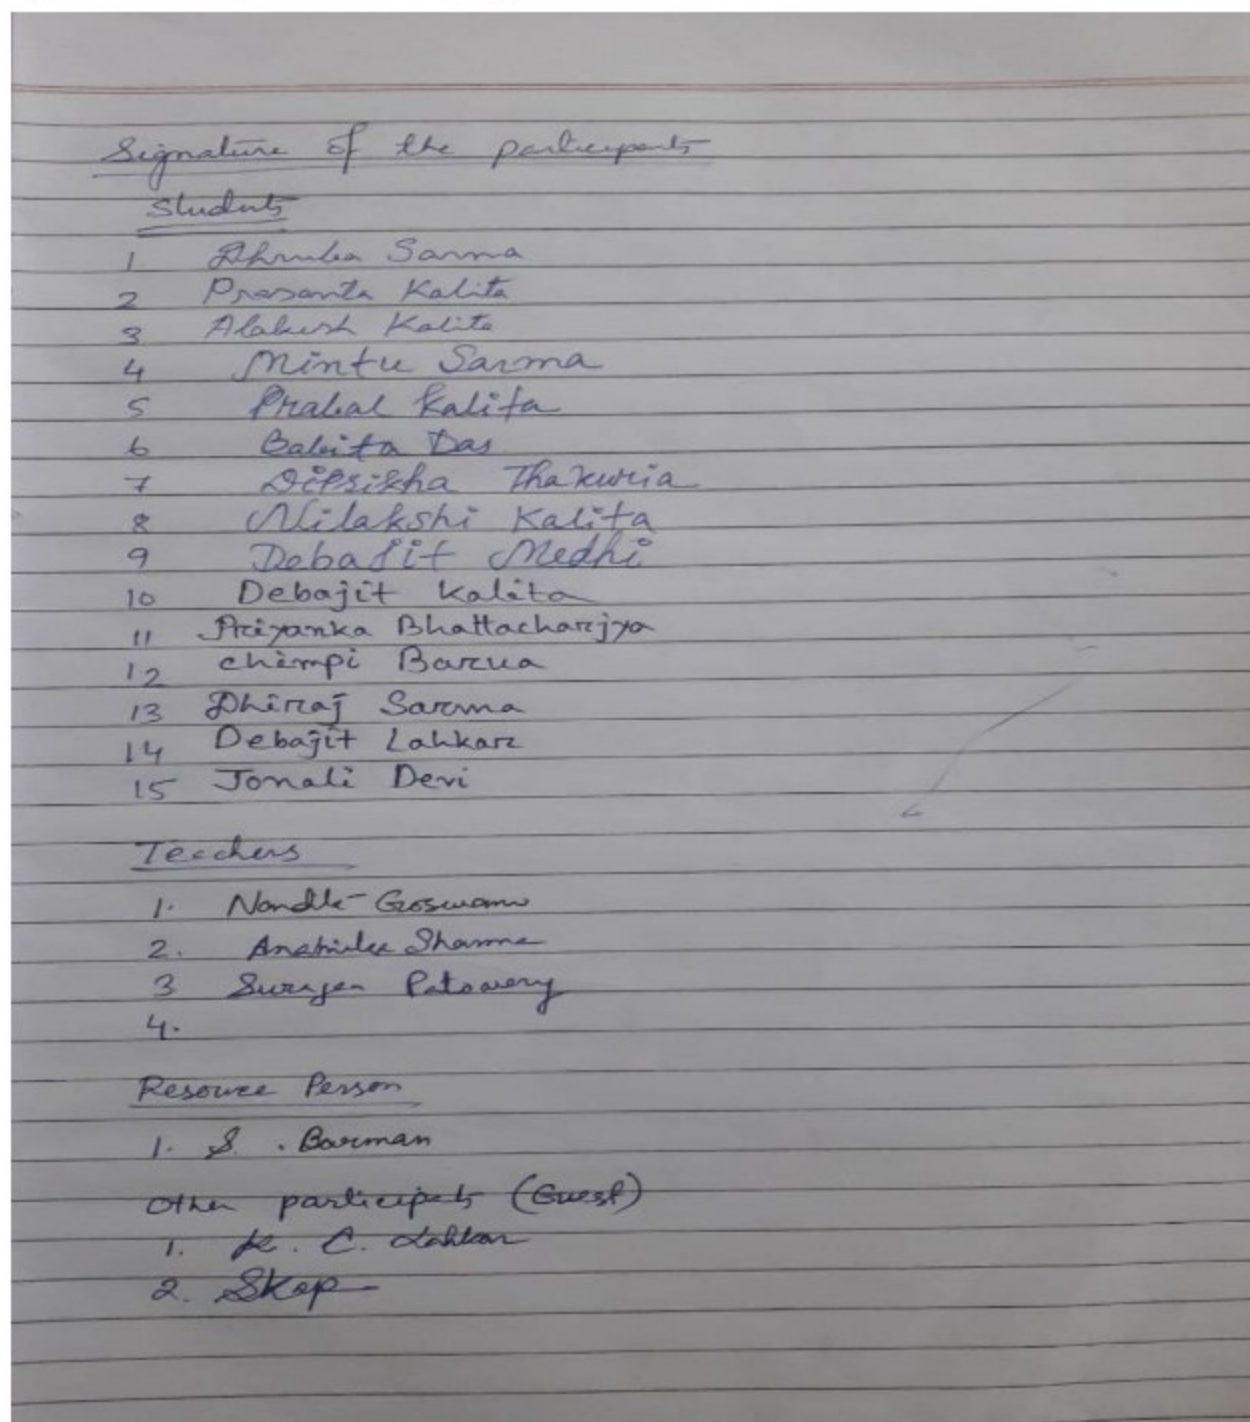 Signature of the participants
Students
1 Dhruba Sarma
2 Prasanta Kalita
3 Alakesh Kalita
4 Mintu Sarma
5 Prabal Kalita
6 Babita Das
7 Dipsikha Thakuria
8 Nilakshi Kalita
9 Debajit Medhi
10 Debajit Kalita
11 Priyanka Bhattacharjya
12 Chimpi Barua
13 Dhiraj Sarma
14 Debajit Lahkar
15 Jonali Devi
Teachers
1. Goswami
2. Sharma
3 Patowary
4.
Resource Person
1. S. Barman
Other participants (Guest)
1. K. C. Lahkar
2.